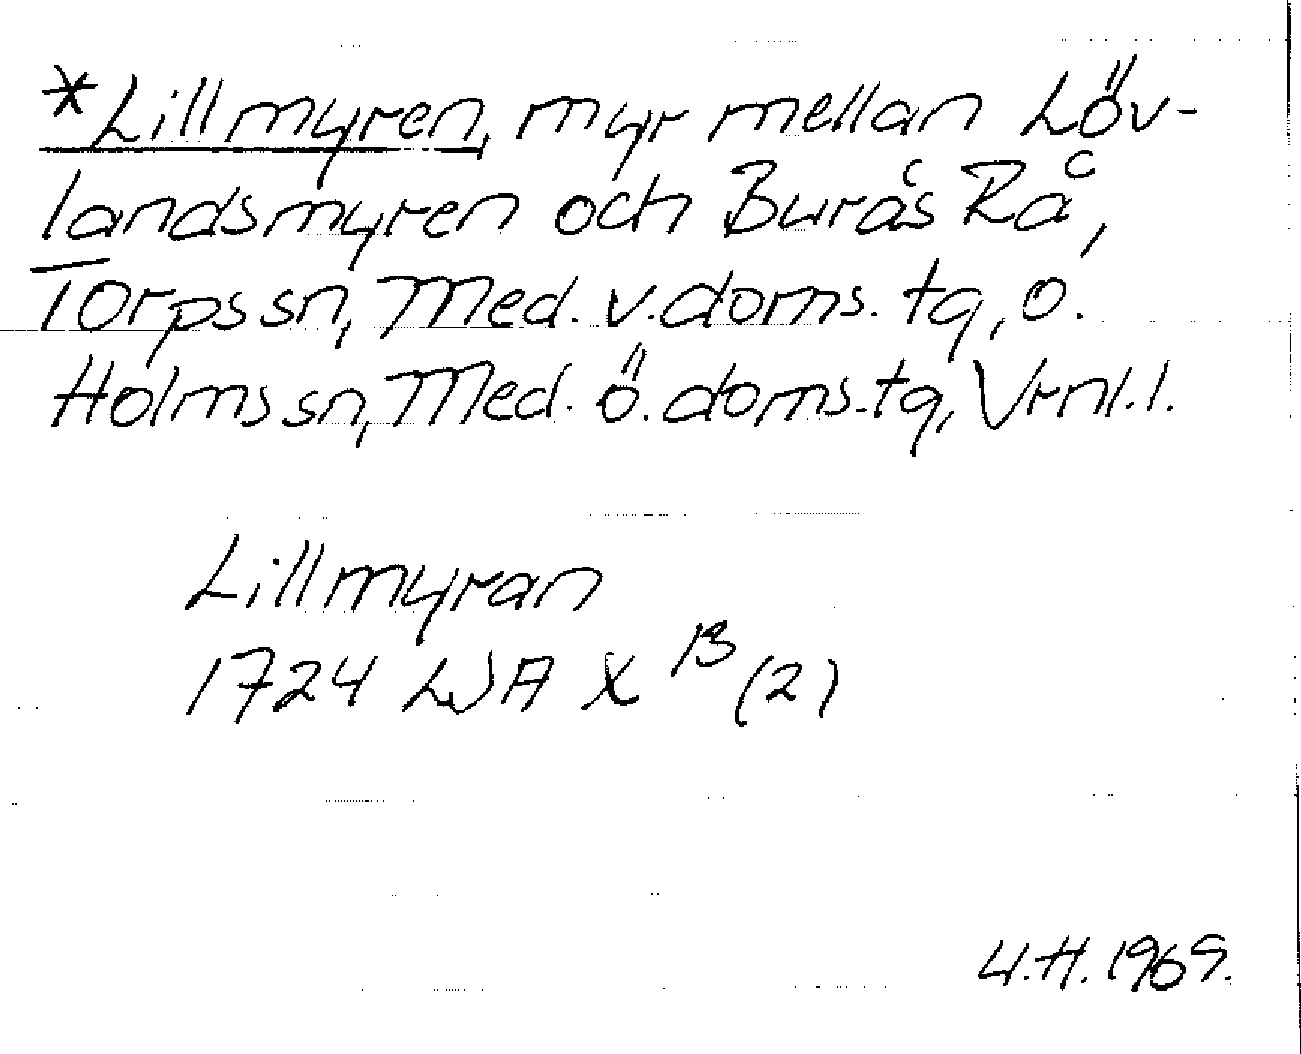 *Lillmyren, myr mellan Löv-
landsmyren och Burås Rå,
Torps sn, Med. v. doms. tg, o.
Holms sn, Med. ö. doms. tg, Vrnl. l.
Lillmyran
1724 LSA X 13 (2)
U.H. 1969.